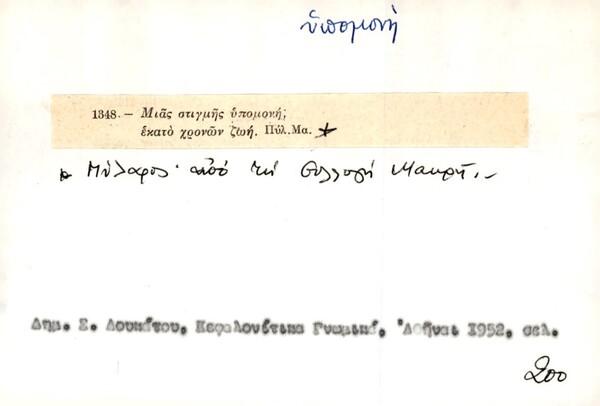 ὑπομονή
1348. — Μιᾶς στιγμῆς ὑπομονή;
ἑκατὸ χρονῶν ζωή. Πύλ.Μα. *
* Πύλαρος· ἀπό τή Συλλογή Μακρῆ.-
Δημ. Σ. Λουκάτου, Κεφαλονίτικα Γνωμικά, Ἀθῆναι 1952, σελ.
200